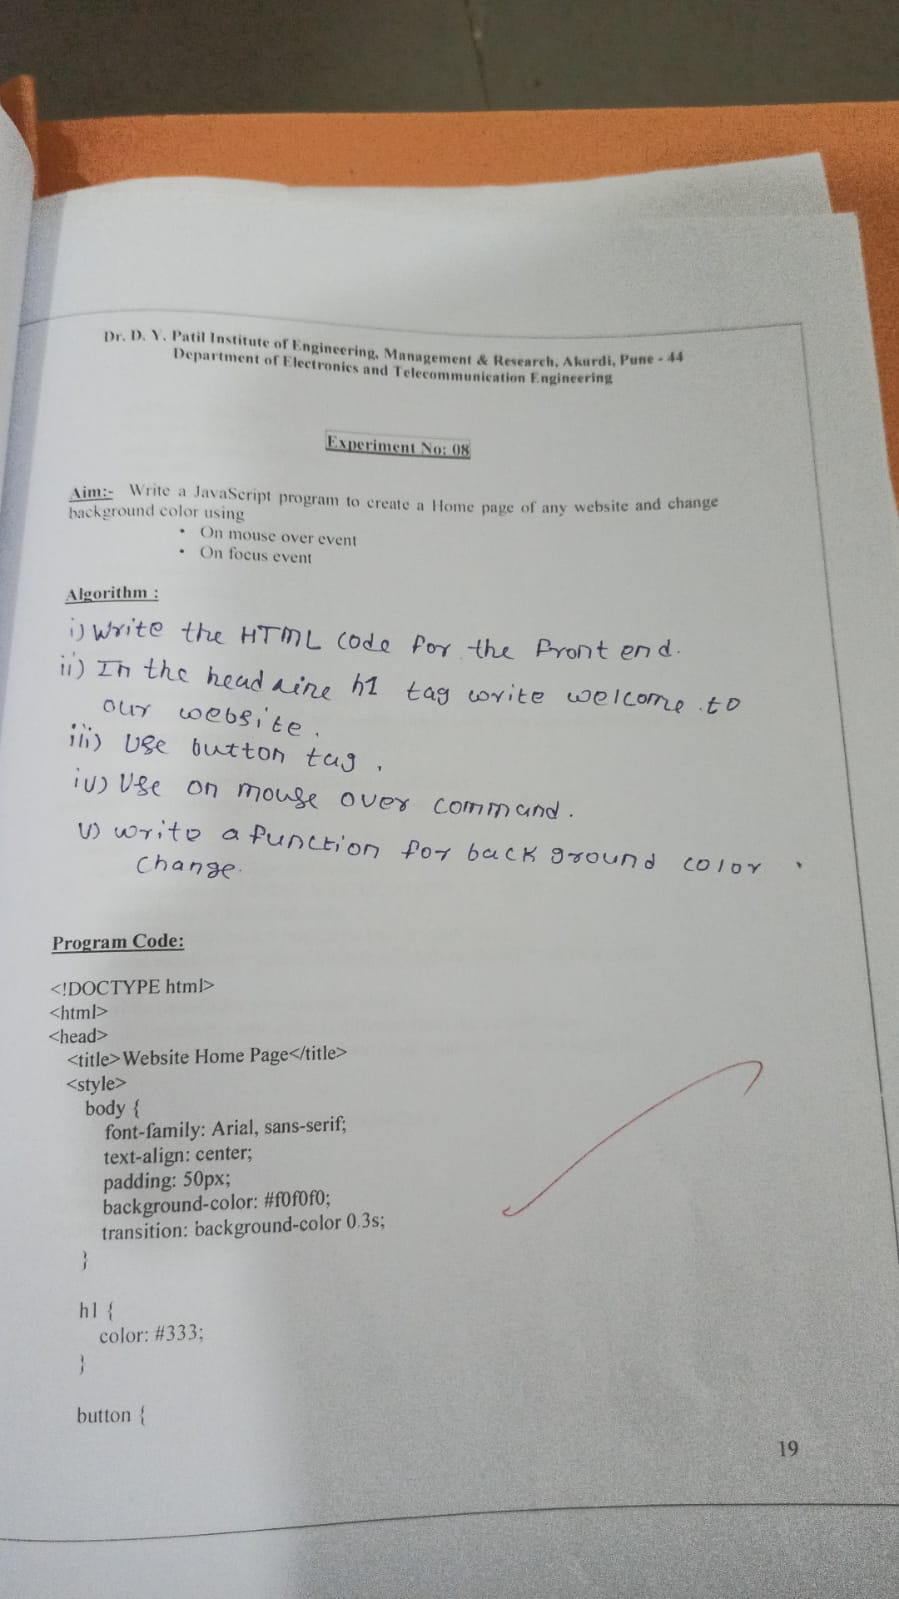 Dr. D. Y. Patil Institute of Engineering, Management & Research, Akurdi, Pune - 44
Department of Electronics and Telecommunication Engineering
Experiment No: 08
Aim:- Write a JavaScript program to create a Home page of any website and change
background color using
• On mouse over event
• On focus event
Algorithm :
i) Write the HTML code for the front end.
ii) In the head h1 tag write welcome to
our website.
iii) Use button tag.
iv) Use on mouse over command.
v) write a function for back ground color
change.
Program Code:
<!DOCTYPE html>
<html>
<head>
<title>Website Home Page</title>
<style>
body {
font-family: Arial, sans-serif;
text-align: center;
padding: 50px;
background-color: #f0f0f0;
transition: background-color 0.3s;
}
h1 {
color: #333;
}
button {
19